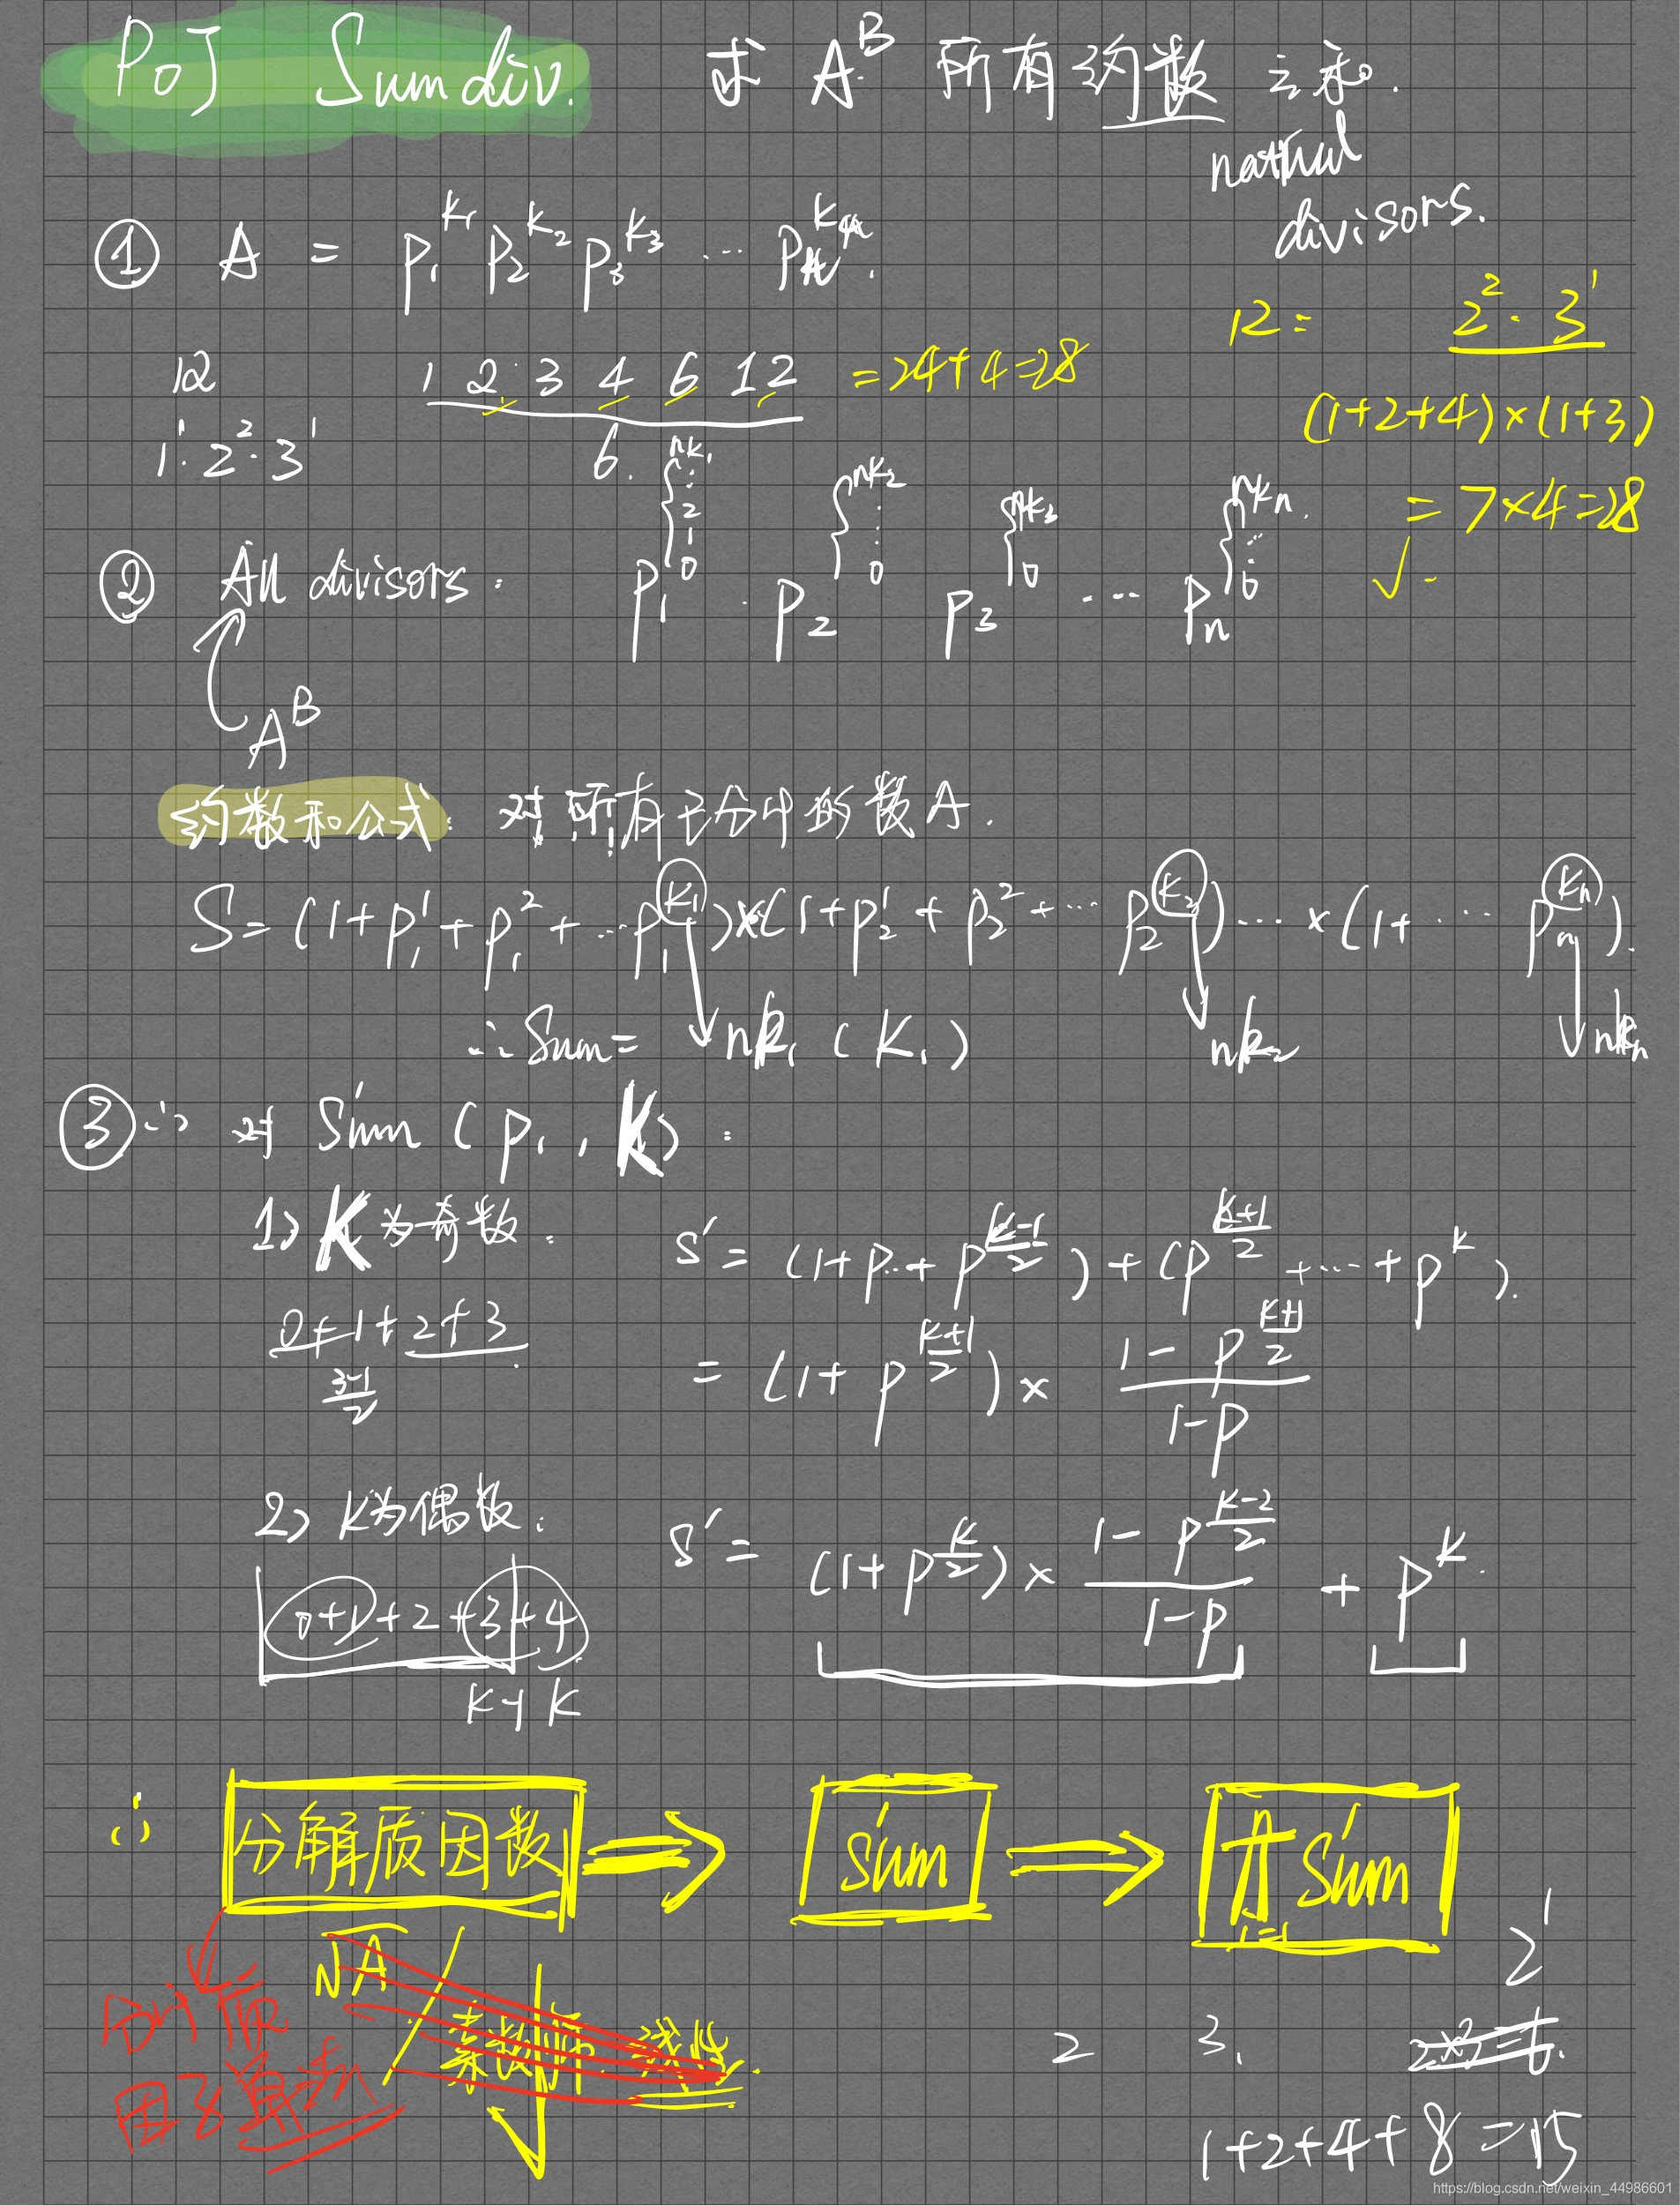 POJ Sumdiv. 求 A^B 所有约数之和.
natural
divisors.
① A = p₁^k₁ p₂^k₂ p₃^k₃ ...
12 = 2² · 3¹
12 1 2 3 4 6 12 = 24+4=28
(1+2+4)×(1+3)
1¹·2²·3¹ 6.
= 7×4=28
√
② All divisors: p₁^{nk₁ ⋮ 2 1 0} · p₂^{nk₂ ⋮ 0} p₃^{nk₃ 0} ... pₙ^{nkₙ ⋮ 0}
A^B
约数和公式: 对所有已分中的数A.
S = (1+p₁¹+p₁²+...p₁^k₁)×(1+p₂¹+p₂²+...p₂^k₂)...×(1+...pₙ^kₙ).
∴ Sum = nk₁ (K₁) nk₂ nkₙ
③ ∴ 对 Sum' (p₁, K):
1) K为奇数: S' = (1+p..+p^{(k-1)/2}) + (p^{(k+1)/2} +...+ p^k).
0+1+2+3
(3-1)/2
= (1+p^{(k+1)/2}) × (1-p^{(k+1)/2})/(1-p)
2) K为偶数: S' = (1+p^{k/2}) × (1-p^{(k-2)/2})/(1-p) + p^k
0+1+2+3+4
K-1 K
∴ 分解质因数 ⇒ Sum' ⇒ π i=1 Sum'
√A / 素数筛. 线性.
用了
2¹
2 3.
1+2+4+8=15
https://blog.csdn.net/weixin_44986601